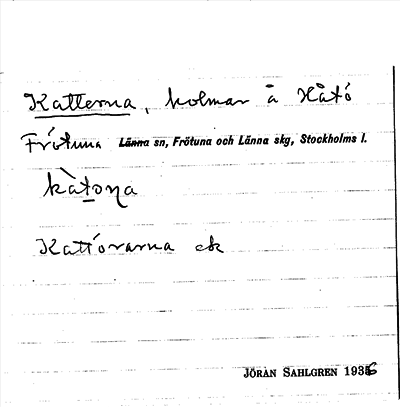 Katterna, holmar å Håtö
Frötuna Länna sn, Frötuna och Länna skg, Stockholms l.
kàtoṇa
Kattörarna ek
JÖRAN SAHLGREN 1936